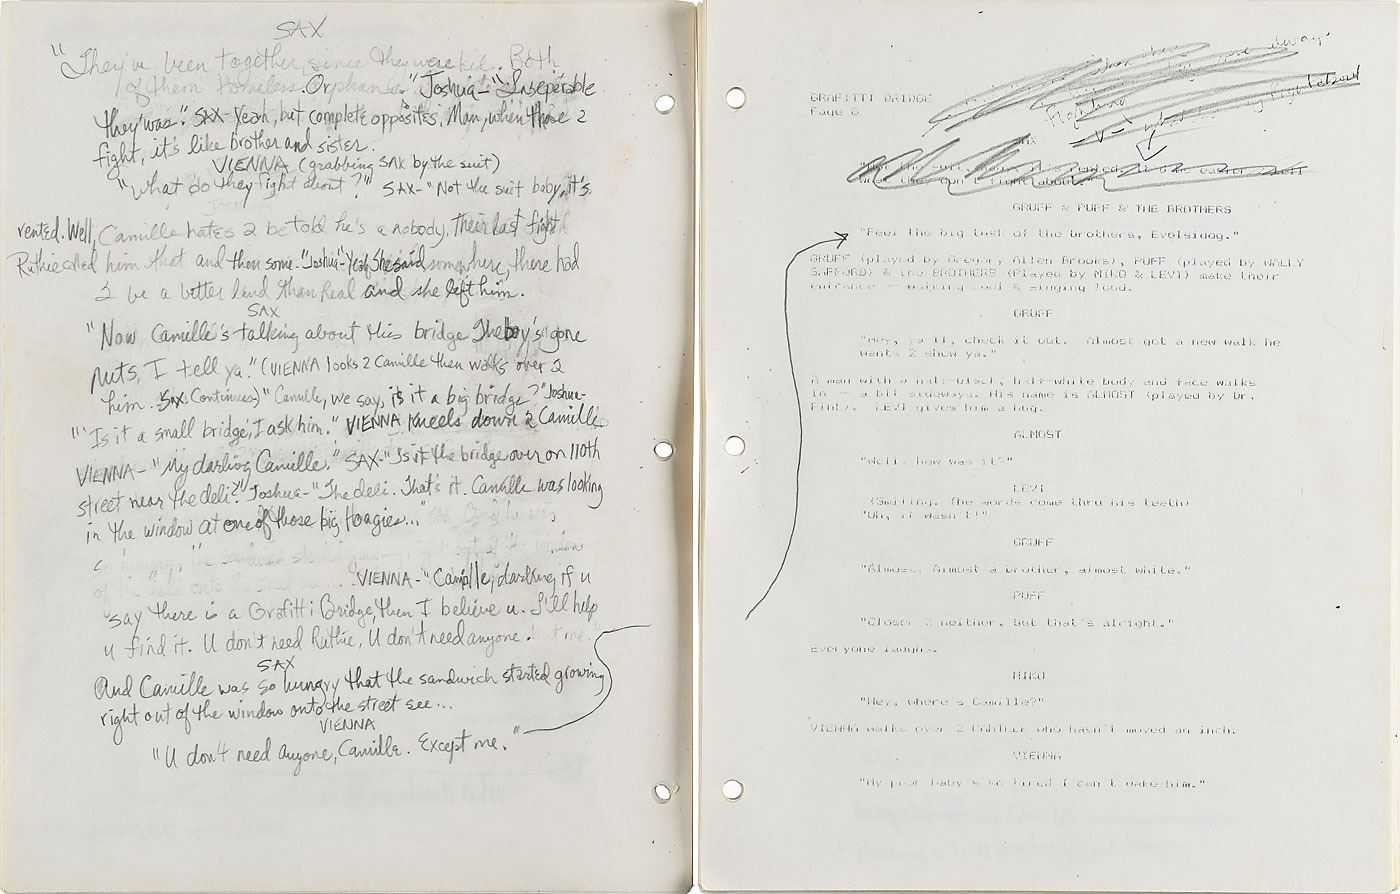 SAX
"They've been together, since they were kids. Both
of them homeless. Orphans." Joshua-"Inseperable
they was." SAX- Yeah, but complete opposites. Man, when those 2
fight, it's like brother and sister.
VIENNA (grabbing SAX by the suit)
"What do they fight about?" SAX-"Not the suit baby, it's
rented. Well, Camille hates 2 be told he's a nobody. Their last fight
Ruthie called him that and then some. "Joshua-"Yeah, She said somewhere, there had
2 be a better land than Real and she left him.
SAX
"Now Camille's talking about this bridge The boy's gone
nuts, I tell ya." (VIENNA looks 2 Camille then walks over 2
him. SAX Continues) "Camille, we say, is it a big bridge?" Joshua-
"'Is it a small bridge,' I ask him." VIENNA kneels down 2 Camille
VIENNA- "My darling Camille." SAX-"Is it the bridge over on 110th
street near the deli?" Joshua-"The deli. That's it. Camille was looking
in the window at one of those big Hoagies..."
"VIENNA-"Camille, darling, if u
say there is a Grafitti Bridge, then I believe u. I'll help
u find it. U don't need Ruthie, U don't need anyone. but me."
SAX
And Camille was so hungry that the sandwich started growing
right out of the window onto the street see...
VIENNA
"U don't need anyone, Camille. Except me."
GRAFITTI BRIDGE
Page 6
GRUFF & PUFF & THE BROTHERS
"Feel the big tusk of the brothers, Evolsidog."
GRUFF (played by Gregory Allen Brooks), PUFF (played by WALLY
SAFFORD) & the BROTHERS (Played by MIKO & LEVI) make their
entrance -- walking cool & singing loud.
GRUFF
"Hey, ya'll, check it out. Almost got a new walk he
wants 2 show ya."
A man with a half-black, half-white body and face walks
in -- a bit sideways. His name is ALMOST (played by Dr.
Fink). LEVI gives him a hug.
ALMOST
"Well, how was it?"
LEVI
(Smiling. The words come thru his teeth)
"Uh, it wasn't!"
GRUFF
"Almost. Almost a brother, almost white."
PUFF
"Closer 2 neither, but that's alright."
Everyone laughs.
MIKO
"Hey, where's Camille?"
VIENNA walks over 2 CAMILLE who hasn't moved an inch.
VIENNA
"My poor baby's so tired I can't wake him."